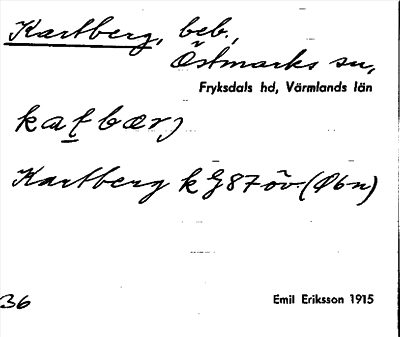 Kartberg, beb.,
Östmarks sn,
Fryksdals hd, Värmlands län
Kartberg k
36
Emil Eriksson 1915